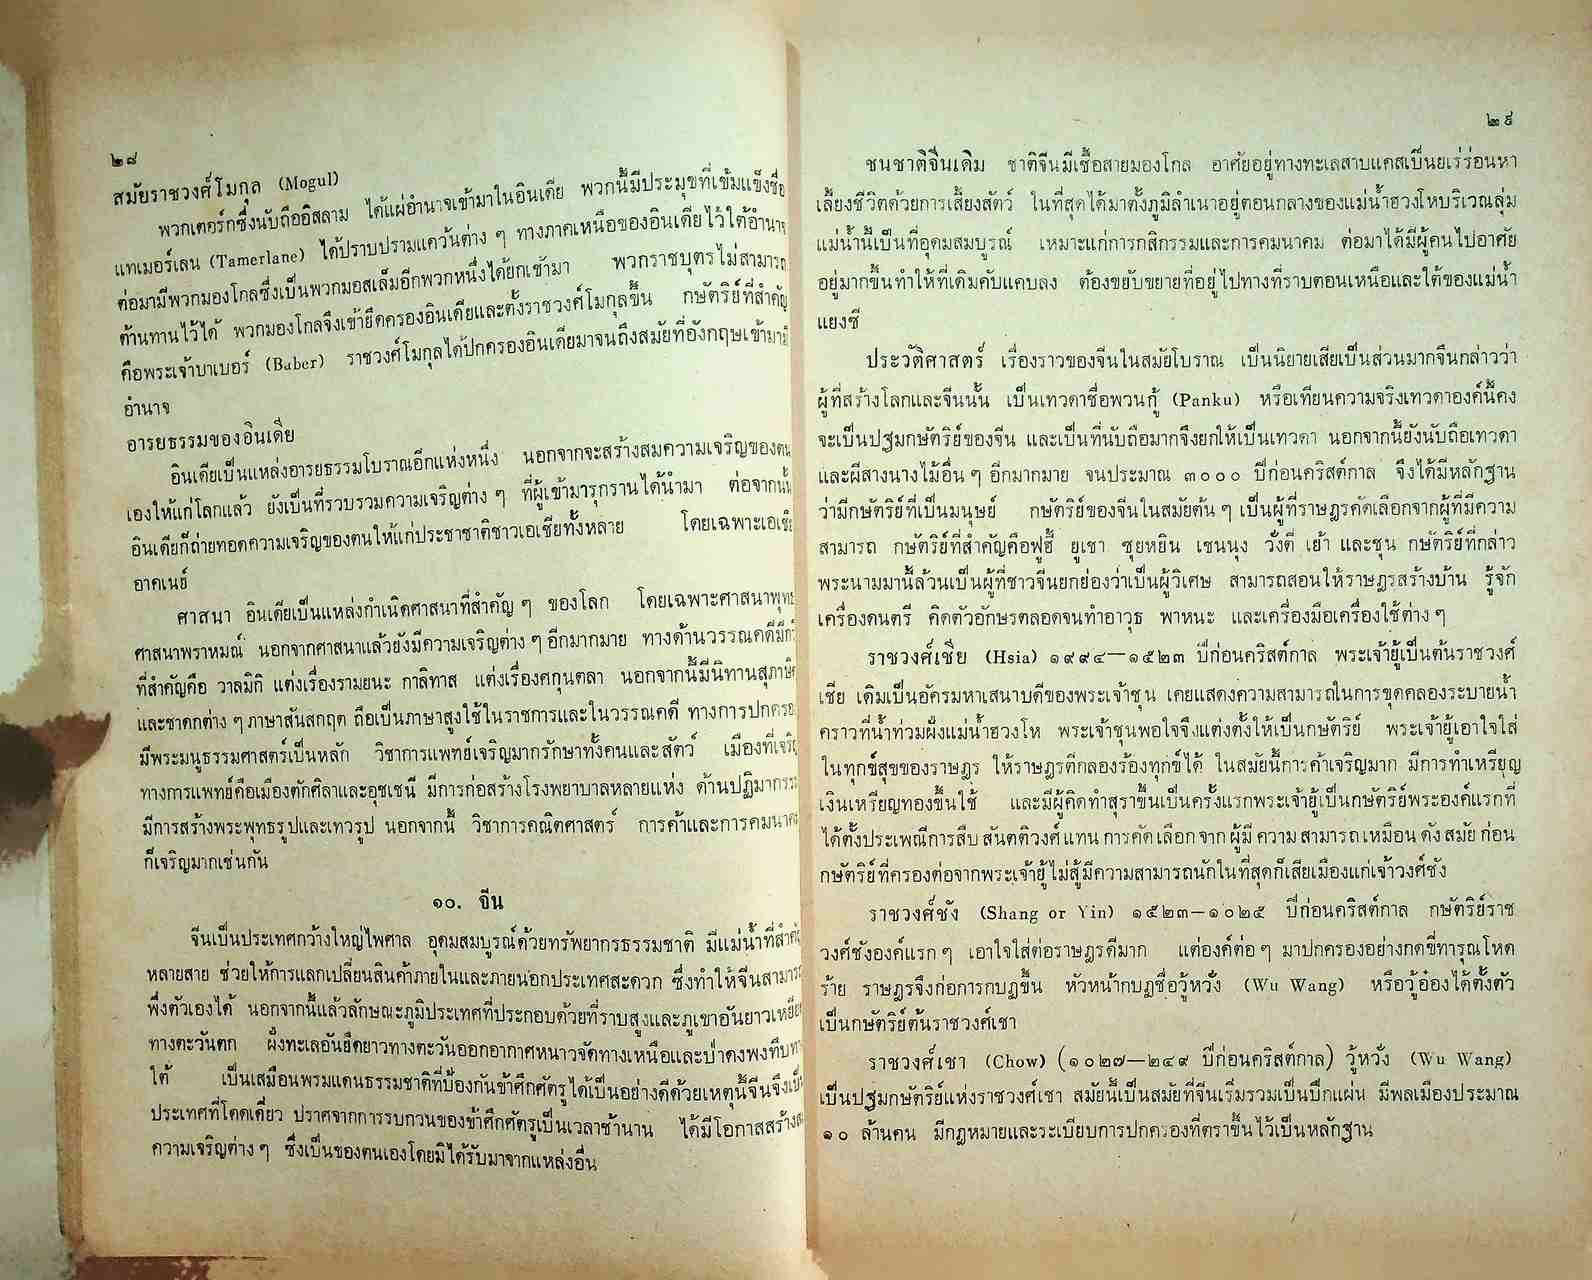 ๒๘
สมัยราชวงศ์โมกุล (Mogul)
พวกเตอร์กซึ่งนับถืออิสลาม ได้แผ่อำนาจเข้ามาในอินเดีย พวกนี้มีประมุขที่เข้มแข็งชื่อ
แทเมอร์เลน (Tamerlane) ได้ปราบปรามแคว้นต่าง ๆ ทางภาคเหนือของอินเดียไว้ใต้อำนาจ
ต่อมามีพวกมองโกลซึ่งเป็นพวกมอสเล็มอีกพวกหนึ่งได้ยกเข้ามา พวกราชบุตรไม่สามารถ
ต้านทานไว้ได้ พวกมองโกลจึงเข้ายึดครองอินเดียและตั้งราชวงศ์โมกุลขึ้น กษัตริย์ที่สำคัญ
คือพระเจ้าบาเบอร์ (Baber) ราชวงศ์โมกุลได้ปกครองอินเดียมาจนถึงสมัยที่อังกฤษเข้ามามี
อำนาจ
อารยธรรมของอินเดีย
อินเดียเป็นแหล่งอารยธรรมโบราณอีกแห่งหนึ่ง นอกจากจะสร้างสมความเจริญของตน
เองให้แก่โลกแล้ว ยังเป็นที่รวบรวมความเจริญต่าง ๆ ที่ผู้เข้ามารุกรานได้นำมา ต่อจากนั้น
อินเดียก็ถ่ายทอดความเจริญของตนให้แก่ประชาชาติชาวเอเซียทั้งหลาย โดยเฉพาะเอเซีย
อาคเนย์
ศาสนา อินเดียเป็นแหล่งกำเนิดศาสนาที่สำคัญ ๆ ของโลก โดยเฉพาะศาสนาพุทธ
ศาสนาพราหมณ์ นอกจากศาสนาแล้วยังมีความเจริญต่าง ๆ อีกมากมาย ทางด้านวรรณคดีมีกวี
ที่สำคัญคือ วาลมิกิ แต่งเรื่องรามยนะ กาลิทาส แต่งเรื่องศกุนตลา นอกจากนี้มีนิทานสุภาษิต
และชาดกต่าง ๆ ภาษาสันสกฤต ถือเป็นภาษาสูงใช้ในราชการและในวรรณคดี ทางการปกครอง
มีพระมนูธรรมศาสตร์เป็นหลัก วิชาการแพทย์เจริญมากรักษาทั้งคนและสัตว์ เมืองที่เจริญ
ทางการแพทย์คือเมืองตักศิลาและอุชเชนี มีการก่อสร้างโรงพยาบาลหลายแห่ง ด้านปฏิมากรรม
มีการสร้างพระพุทธรูปและเทวรูป นอกจากนี้ วิชาการคณิตศาสตร์ การค้าและการคมนาคม
ก็เจริญมากเช่นกัน
๑๐. จีน
จีนเป็นประเทศกว้างใหญ่ไพศาล อุดมสมบูรณ์ด้วยทรัพยากรธรรมชาติ มีแม่น้ำที่สำคัญ
หลายสาย ช่วยให้การแลกเปลี่ยนสินค้าภายในและภายนอกประเทศสะดวก ซึ่งทำให้จีนสามารถ
พึ่งตัวเองได้ นอกจากนี้แล้วลักษณะภูมิประเทศที่ประกอบด้วยที่ราบสูงและภูเขาอันยาวเหยียด
ทางตะวันตก ฝั่งทะเลอันยืดยาวทางตะวันออกอากาศหนาวจัดทางเหนือและป่าดงพงทึบทาง
ใต้ เป็นเสมือนพรมแดนธรรมชาติที่ป้องกันข้าศึกศัตรูได้เป็นอย่างดีด้วยเหตุนี้จีนจึงเป็น
ประเทศที่โดดเดี่ยว ปราศจากการรบกวนของข้าศึกศัตรูเป็นเวลาช้านาน ได้มีโอกาสสร้างสม
ความเจริญต่าง ๆ ซึ่งเป็นของตนเองโดยมิได้รับมาจากแหล่งอื่น
๒๙
ชนชาติจีนเดิม ชาติจีนมีเชื้อสายมองโกล อาศัยอยู่ทางทะเลสาบแคสเบี้นยเร่ร่อนหา
เลี้ยงชีวิตด้วยการเลี้ยงสัตว์ ในที่สุดได้มาตั้งภูมิลำเนาอยู่ตอนกลางของแม่น้ำฮวงโหบริเวณลุ่ม
แม่น้ำนี้เป็นที่อุดมสมบูรณ์ เหมาะแก่การกสิกรรมและการคมนาคม ต่อมาได้มีผู้คนไปอาศัย
อยู่มากขึ้นทำให้ที่เดิมคับแคบลง ต้องขยับขยายที่อยู่ไปทางที่ราบตอนเหนือและใต้ของแม่น้ำ
แยงซี
ประวัติศาสตร์ เรื่องราวของจีนในสมัยโบราณ เป็นนิยายเสียเป็นส่วนมากจีนกล่าวว่า
ผู้ที่สร้างโลกและจีนนั้น เป็นเทวดาชื่อพวนกู้ (Panku) หรือเทียนความจริงเทวดาองค์นี้คง
จะเป็นปฐมกษัตริย์ของจีน และเป็นที่นับถือมากจึงยกให้เป็นเทวดา นอกจากนี้ยังนับถือเทวดา
และผีสางนางไม้อื่น ๆ อีกมากมาย จนประมาณ ๓๐๐๐ ปีก่อนคริสต์กาล จึงได้มีหลักฐาน
ว่ามีกษัตริย์ที่เป็นมนุษย์ กษัตริย์ของจีนในสมัยต้น ๆ เป็นผู้ที่ราษฎรคัดเลือกจากผู้ที่มีความ
สามารถ กษัตริย์ที่สำคัญคือฟูฮี้ ยูเชา ซุยหยิน เชนนุง วั่งตี่ เย้า และชุน กษัตริย์ที่กล่าว
พระนามมานี้ล้วนเป็นผู้ที่ชาวจีนยกย่องว่าเป็นผู้วิเศษ สามารถสอนให้ราษฎรสร้างบ้าน รู้จัก
เครื่องดนตรี คิดตัวอักษรตลอดจนทำอาวุธ พาหนะ และเครื่องมือเครื่องใช้ต่าง ๆ
ราชวงศ์เชีย (Hsia) ๑๙๙๔—๑๕๒๓ ปีก่อนคริสต์กาล พระเจ้ายู้เป็นต้นราชวงศ์
เชีย เดิมเป็นอัครมหาเสนาบดีของพระเจ้าชุน เคยแสดงความสามารถในการขุดคลองระบายน้ำ
คราวที่น้ำท่วมฝั่งแม่น้ำฮวงโห พระเจ้าชุนพอใจจึงแต่งตั้งให้เป็นกษัตริย์ พระเจ้ายู้เอาใจใส่
ในทุกข์สุขของราษฎร ให้ราษฎรตีกลองร้องทุกข์ได้ ในสมัยนี้การค้าเจริญมาก มีการทำเหรียญ
เงินเหรียญทองขึ้นใช้ และมีผู้คิดทำสุราขึ้นเป็นครั้งแรกพระเจ้ายู้เป็นกษัตริย์พระองค์แรกที่
ได้ตั้งประเพณีการสืบ สันตติวงศ์ แทน การคัด เลือก จาก ผู้มี ความ สามารถ เหมือน ดัง สมัย ก่อน
กษัตริย์ที่ครองต่อจากพระเจ้ายู้ไม่สู้มีความสามารถนักในที่สุดก็เสียเมืองแก่เจ้าวงศ์ชัง
ราชวงศ์ชัง (Shang or Yin) ๑๕๒๓—๑๐๒๕ ปีก่อนคริสต์กาล กษัตริย์ราช
วงศ์ชังองค์แรก ๆ เอาใจใส่ต่อราษฎรดีมาก แต่องค์ต่อ ๆ มาปกครองอย่างกดขี่ทารุณโหด
ร้าย ราษฎรจึงก่อการกบฏขึ้น หัวหน้ากบฏชื่อวู้หวั่ง (Wu Wang) หรือวู้อ๋องได้ตั้งตัว
เป็นกษัตริย์ต้นราชวงศ์เชา
ราชวงศ์เชา (Chow) (๑๐๒๗—๒๔๙ ปีก่อนคริสต์กาล) วู้หวั่ง (Wu Wang)
เป็นปฐมกษัตริย์แห่งราชวงศ์เชา สมัยนี้เป็นสมัยที่จีนเริ่มรวมเป็นปึกแผ่น มีพลเมืองประมาณ
๑๐ ล้านคน มีกฎหมายและระเบียบการปกครองที่ตราขึ้นไว้เป็นหลักฐาน